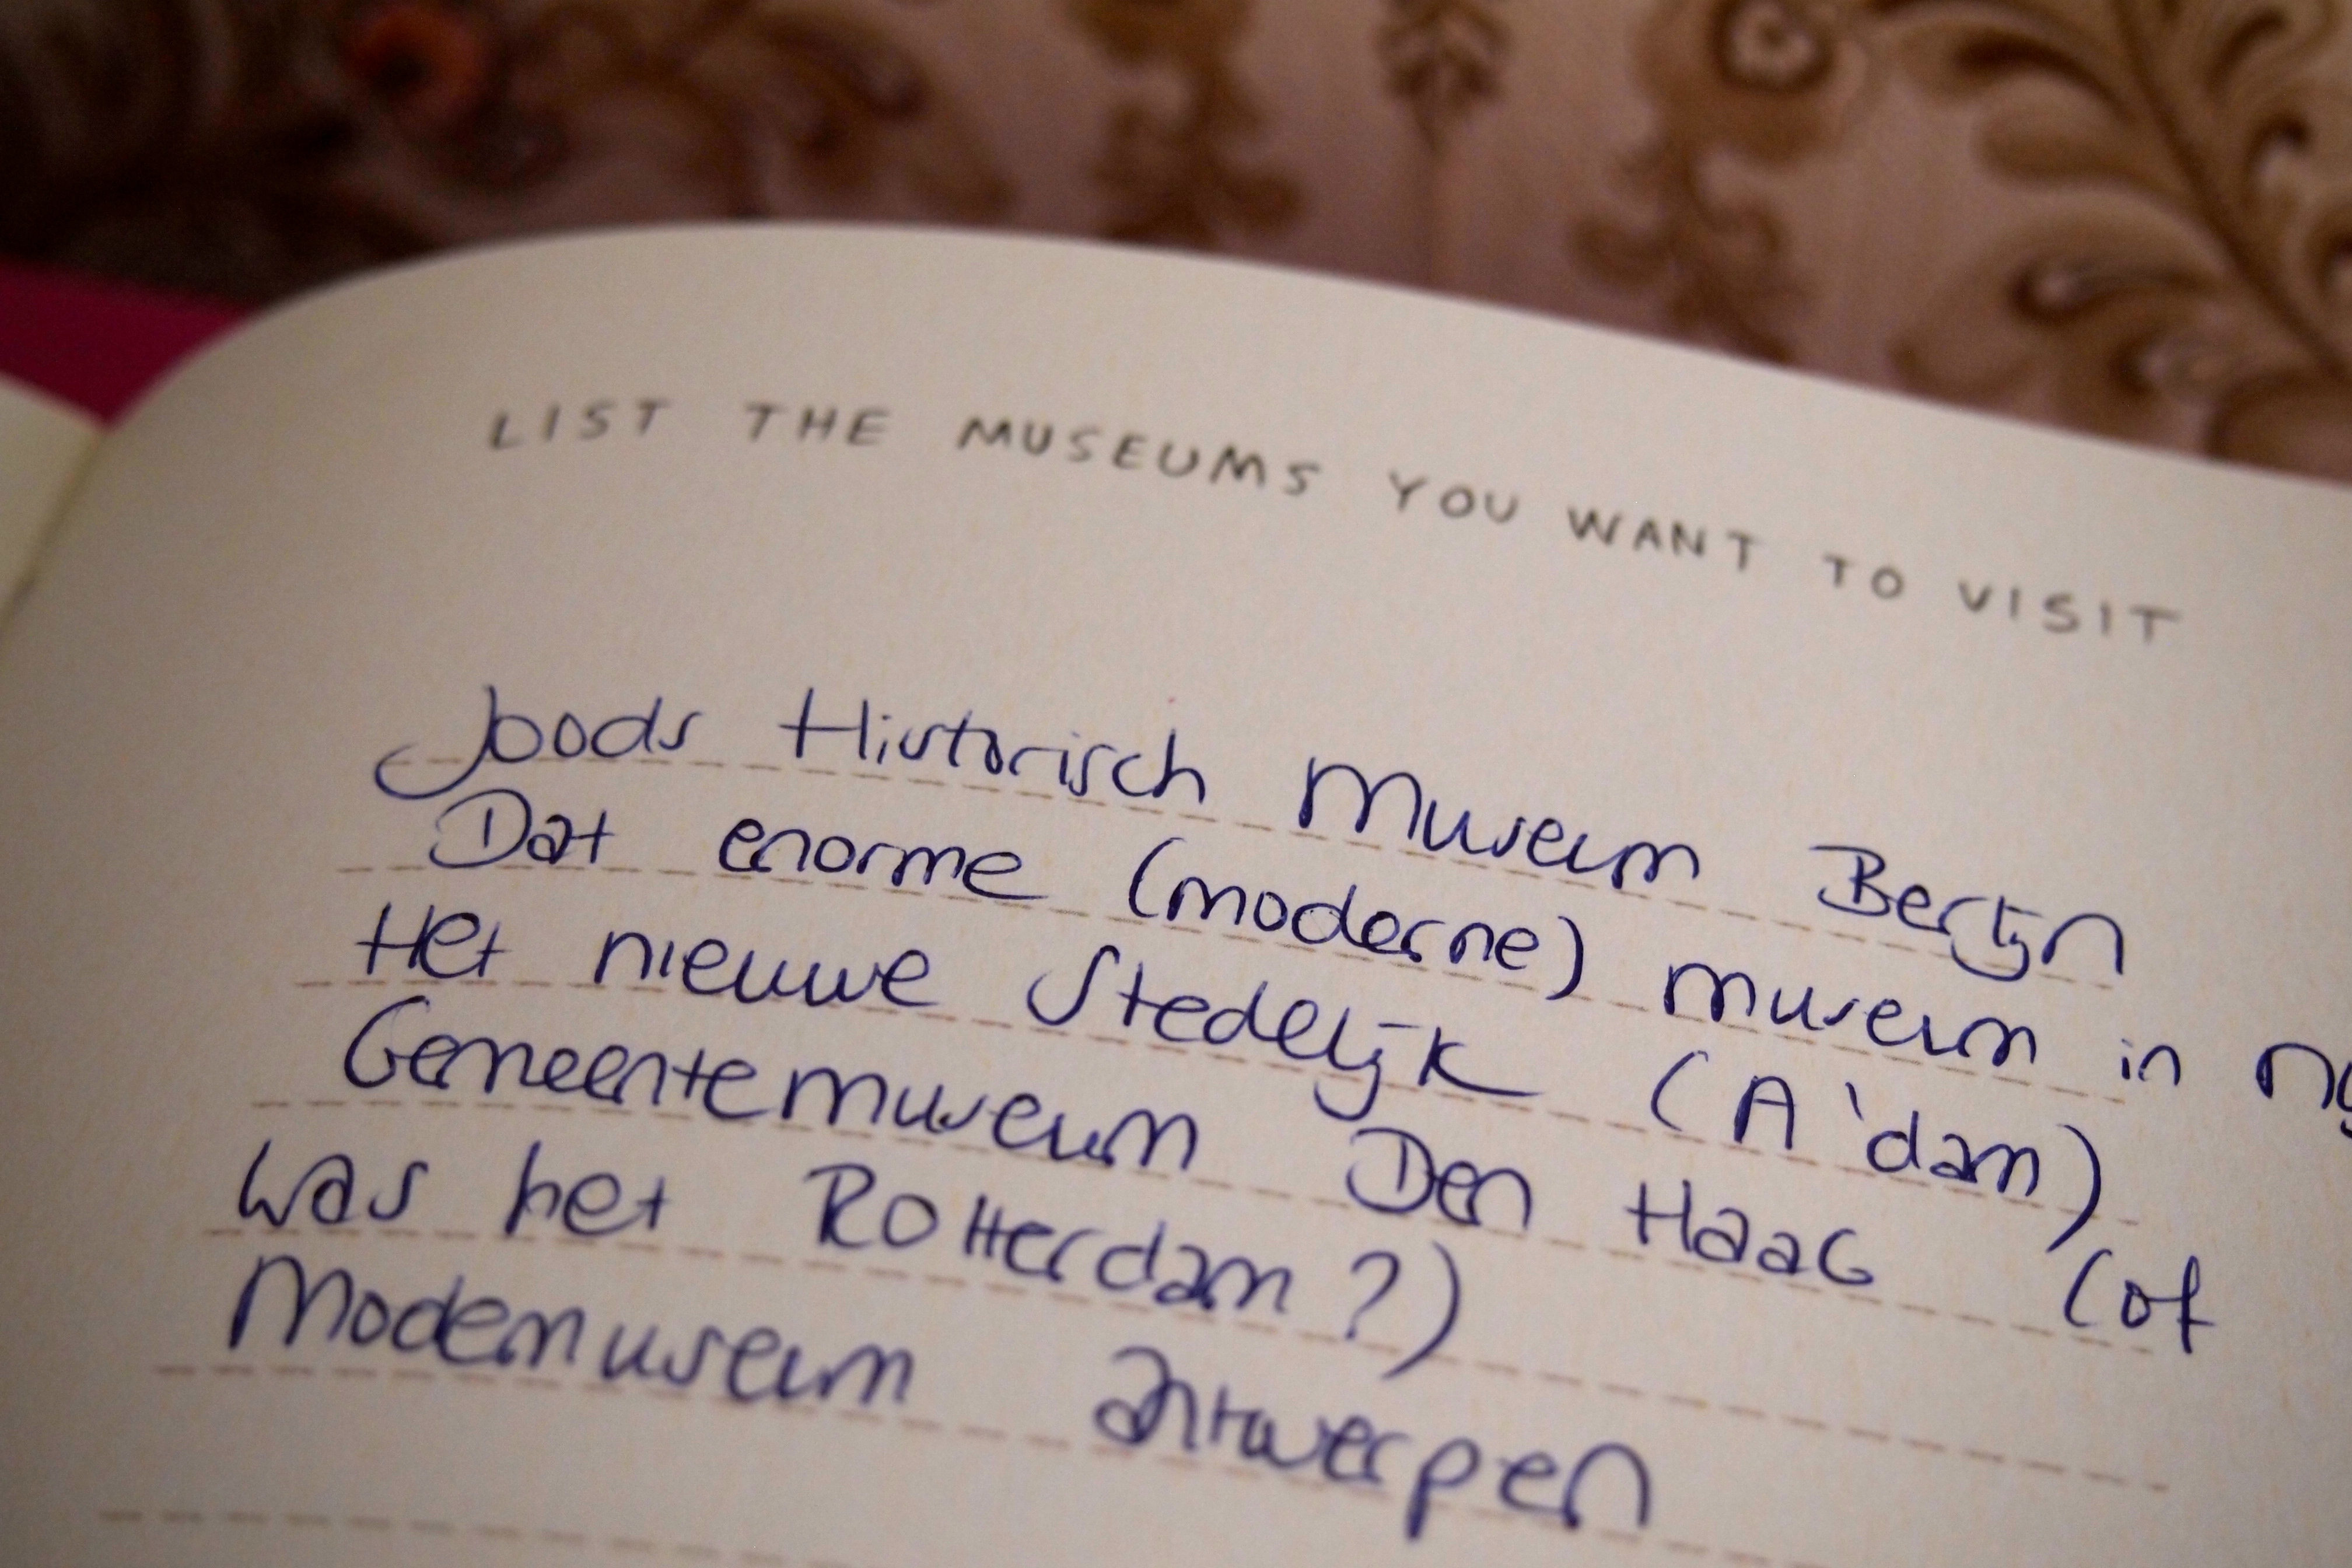 LIST THE MUSEUMS YOU WANT TO VISIT
Joods Historisch Museum Berlijn
Dat enorme (moderne) museum in ny
Het nieuwe Stedelijk (A'dam)
Gemeentemuseum Den Haag (of
was het Rotterdam?)
Modemuseum Antwerpen